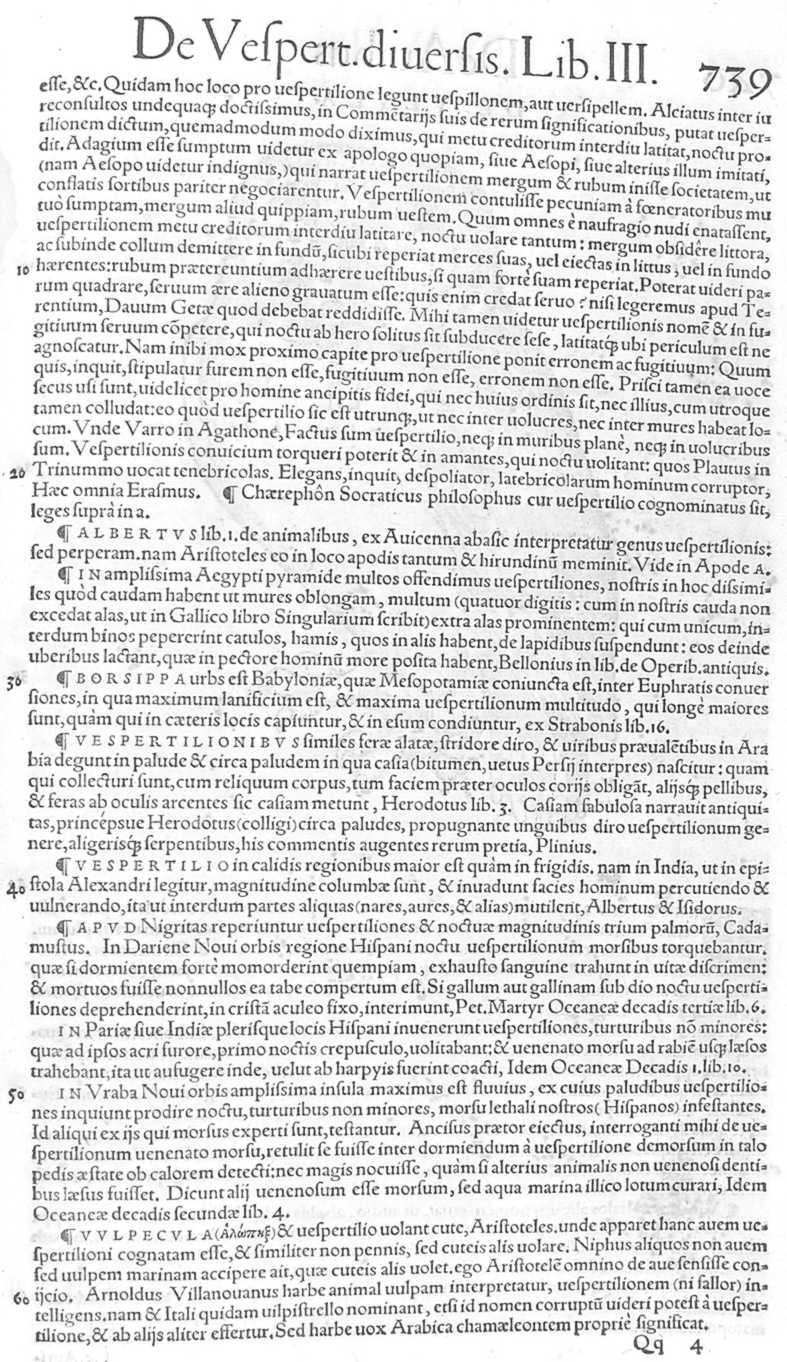 De Veſpert.diuerſis. Lib.III. 739
eſſe,&c.Quidam hoc loco pro ueſpertilione legunt ueſpillonem,aut uerſipellem. Alciatus inter iu
reconſultos undequaq; doctiſsimus,in Commētarijs ſuis de rerum ſignificationibus, putat ueſper-
tilionem dictum,quemadmodum modo diximus,qui metu creditorum interdiu latitat,noctu pro-
dit. Adagium eſſe ſumptum uidetur ex apologo quopiam, ſiue Aeſopi, ſiue alterius illum imitati,
(nam Aeſopo uidetur indignus,)qui narrat ueſpertilionem mergum & rubum iniſſe ſocietatem,ut
conflatis ſortibus pariter negociarentur. Veſpertilionem contuliſſe pecuniam à fœneratoribus mu
tuò ſumptam,mergum aliud quippiam,rubum ueſtem.Quum omnes è naufragio nudi enataſſent,
ueſpertilionem metu creditorum interdiu latitare, noctu uolare tantum : mergum obſidêre littora,
ac ſubinde collum demittere in fundū,ſicubi reperiat merces ſuas, uel eiectas in littus, uel in fundo
10 hærentes:rubum prætereuntium adhærere ueſtibus,ſi quam fortè ſuam reperiat.Poterat uideri pa-
rum quadrare,ſeruum ære alieno grauatum eſſe:quis enim credat ſeruo ? niſi legeremus apud Te-
rentium,Dauum Getæ quod debebat reddidiſſe. Mihi tamen uidetur ueſpertilionis nomē & in fu-
gitiuum ſeruum cōpetere,qui noctu ab hero ſolitus ſit ſubducere ſeſe,latitatq́; ubi periculum eſt ne
agnoſcatur.Nam inibi mox proximo capite pro ueſpertilione ponit erronem ac fugitiuum: Quum
quis,inquit,ſtipulatur furem non eſſe,fugitiuum non eſſe, erronem non eſſe. Priſci tamen ea uoce
ſecus uſi ſunt,uidelicet pro homine ancipitis fidei,qui nec huius ordinis ſit,nec illius,cum utroque
tamen colludat:eo quòd ueſpertilio ſic eſt utrunq;,ut nec inter uolucres,nec inter mures habeat lo-
cum.Vnde Varro in Agathone,Factus ſum ueſpertilio,neq; in muribus planè, neq; in uolucribus
ſum. Veſpertilionis conuicium torqueri poterit & in amantes,qui noctu uolitant: quos Plautus in
20 Trinummo uocat tenebricolas. Elegans,inquit, deſpoliator, latebricolarum hominum corruptor,
Hæc omnia Eraſmus. ¶ Chærephôn Socraticus philoſophus cur ueſpertilio cognominatus ſit,
leges ſuprà in a.
¶ ALBERTVS lib.1.de animalibus, ex Auicenna abaſic interpretatur genus ueſpertilionis:
ſed perperam.nam Ariſtoteles eo in loco apodis tantum & hirundinū meminit. Vide in Apode A.
¶ IN ampliſsima Aegypti pyramide multos offendimus ueſpertiliones, noſtris in hoc diſsimi-
les quòd caudam habent ut mures oblongam, multum (quatuor digitis : cum in noſtris cauda non
excedat alas,ut in Gallico libro Singularium ſcribit)extra alas prominentem: qui cum unicum,in-
terdum binos pepererint catulos, hamis, quos in alis habent,de lapidibus ſuſpendunt: eos deinde
uberibus lactant,quæ in pectore hominū more poſita habent,Bellonius in lib.de Operib.antiquis.
30 ¶ BORSIPPA urbs eſt Babyloniæ,quæ Meſopotamiæ coniuncta eſt,inter Euphratis conuer
ſiones,in qua maximum lanificium eſt, & maxima ueſpertilionum multitudo, qui longè maiores
ſunt,quàm qui in cæteris locis capiuntur,& in eſum condiuntur, ex Strabonis lib.16.
¶ VESPERTILIONIBVS ſimiles feræ alatæ,ſtridore diro, & uiribus præualētibus in Ara
bia degunt in palude & circa paludem in qua caſia(bitumen,uetus Perſij interpres) naſcitur: quam
qui collecturi ſunt,cum reliquum corpus,tum faciem præter oculos corijs obligāt, alijsq́; pellibus,
& feras ab oculis arcentes ſic caſiam metunt, Herodotus lib. 3. Caſiam fabuloſa narrauit antiqui-
tas,princépsue Herodotus(colligi)circa paludes, propugnante unguibus diro ueſpertilionum ge-
nere,aligerisq́; ſerpentibus,his commentis augentes rerum pretia, Plinius.
¶ VESPERTILIO in calidis regionibus maior eſt quàm in frigidis. nam in India, ut in epi-
40 ſtola Alexandri legitur,magnitudine columbæ ſunt, & inuadunt facies hominum percutiendo &
uulnerando,ita ut interdum partes aliquas(nares,aures,& alias)mutilent,Albertus & Iſidorus.
¶ APVD Nigritas reperiuntur ueſpertiliones & noctuæ magnitudinis trium palmorū, Cada-
muſtus. In Dariene Noui orbis regione Hiſpani noctu ueſpertilionum morſibus torquebantur.
quæ ſi dormientem fortè momorderint quempiam, exhauſto ſanguine trahunt in uitæ diſcrimen:
& mortuos fuiſſe nonnullos ea tabe compertum eſt. Si gallum aut gallinam ſub dio noctu ueſperti-
liones deprehenderint,in criſtā aculeo fixo,interimunt,Pet.Martyr Oceaneæ decadis tertiæ lib.6.
IN Pariæ ſiue Indiæ pleriſque locis Hiſpani inuenerunt ueſpertiliones,turturibus nō minores:
quæ ad ipſos acri furore,primo noctis crepuſculo,uolitabant:& uenenato morſu ad rabiē uſq; læſos
trahebant,ita ut aufugere inde, uelut ab harpyis fuerint coacti, Idem Oceaneæ Decadis 1.lib.10.
50 IN Vraba Noui orbis ampliſsima inſula maximus eſt fluuius, ex cuius paludibus ueſpertilio-
nes inquiunt prodire noctu,turturibus non minores, morſu lethali noſtros( Hiſpanos) infeſtantes.
Id aliqui ex ijs qui morſus experti ſunt,teſtantur. Anciſus prætor eiectus, interroganti mihi de ue-
ſpertilionum uenenato morſu,retulit ſe fuiſſe inter dormiendum à ueſpertilione demorſum in talo
pedis æſtate ob calorem detecti:nec magis nocuiſſe, quàm ſi alterius animalis non uenenoſi denti-
bus læſus fuiſſet. Dicunt alij uenenoſum eſſe morſum, ſed aqua marina illico lotum curari, Idem
Oceaneæ decadis ſecundæ lib. 4.
¶ VVLPECVLA(Ἀλώπηξ)& ueſpertilio uolant cute,Ariſtoteles.unde apparet hanc auem ue-
ſpertilioni cognatam eſſe,& ſimiliter non pennis, ſed cuteis alis uolare. Niphus aliquos non auem
ſed uulpem marinam accipere ait,quæ cuteis alis uolet.ego Ariſtotelē omnino de aue ſenſiſſe con-
60 ijcio. Arnoldus Villanouanus harbe animal uulpam interpretatur, ueſpertilionem (ni fallor) in-
telligens.nam & Itali quidam uilpiſtrello nominant, etſi id nomen corruptū uideri poteſt à ueſper-
tilione,& ab alijs aliter effertur.Sed harbe uox Arabica chamæleontem propriè ſignificat.
Qq 4